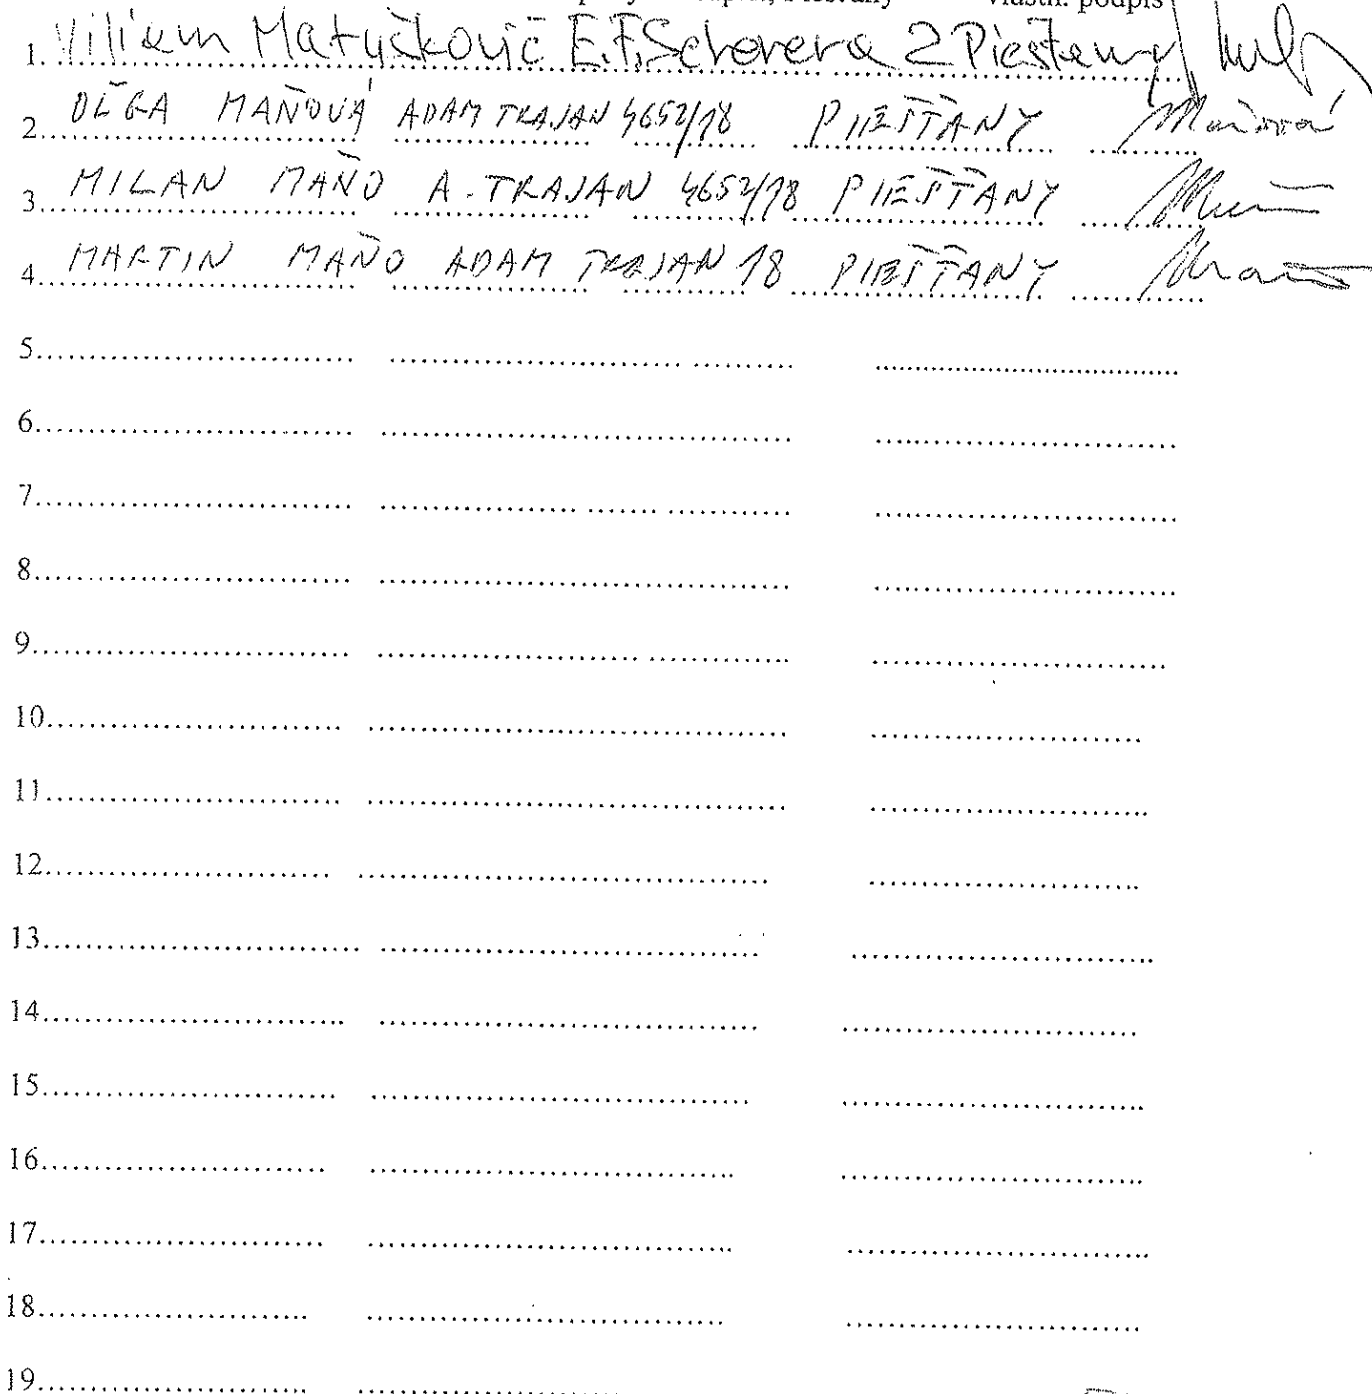 vlastn. podpis
1. Viliam Matyčkovič E.F. Scherera 2 Piešťany
2. OĽGA MAŇOVÁ ADAM TRAJAN 4652/18 PIEŠŤANY Maňová
3. MILAN MAŇO A. TRAJAN 4652/18 PIEŠŤANY
4. MARTIN MAŇO ADAM TRAJAN 18 PIEŠŤANY
5.
6.
7.
8.
9.
10.
11.
12.
13.
14.
15.
16.
17.
18.
19.